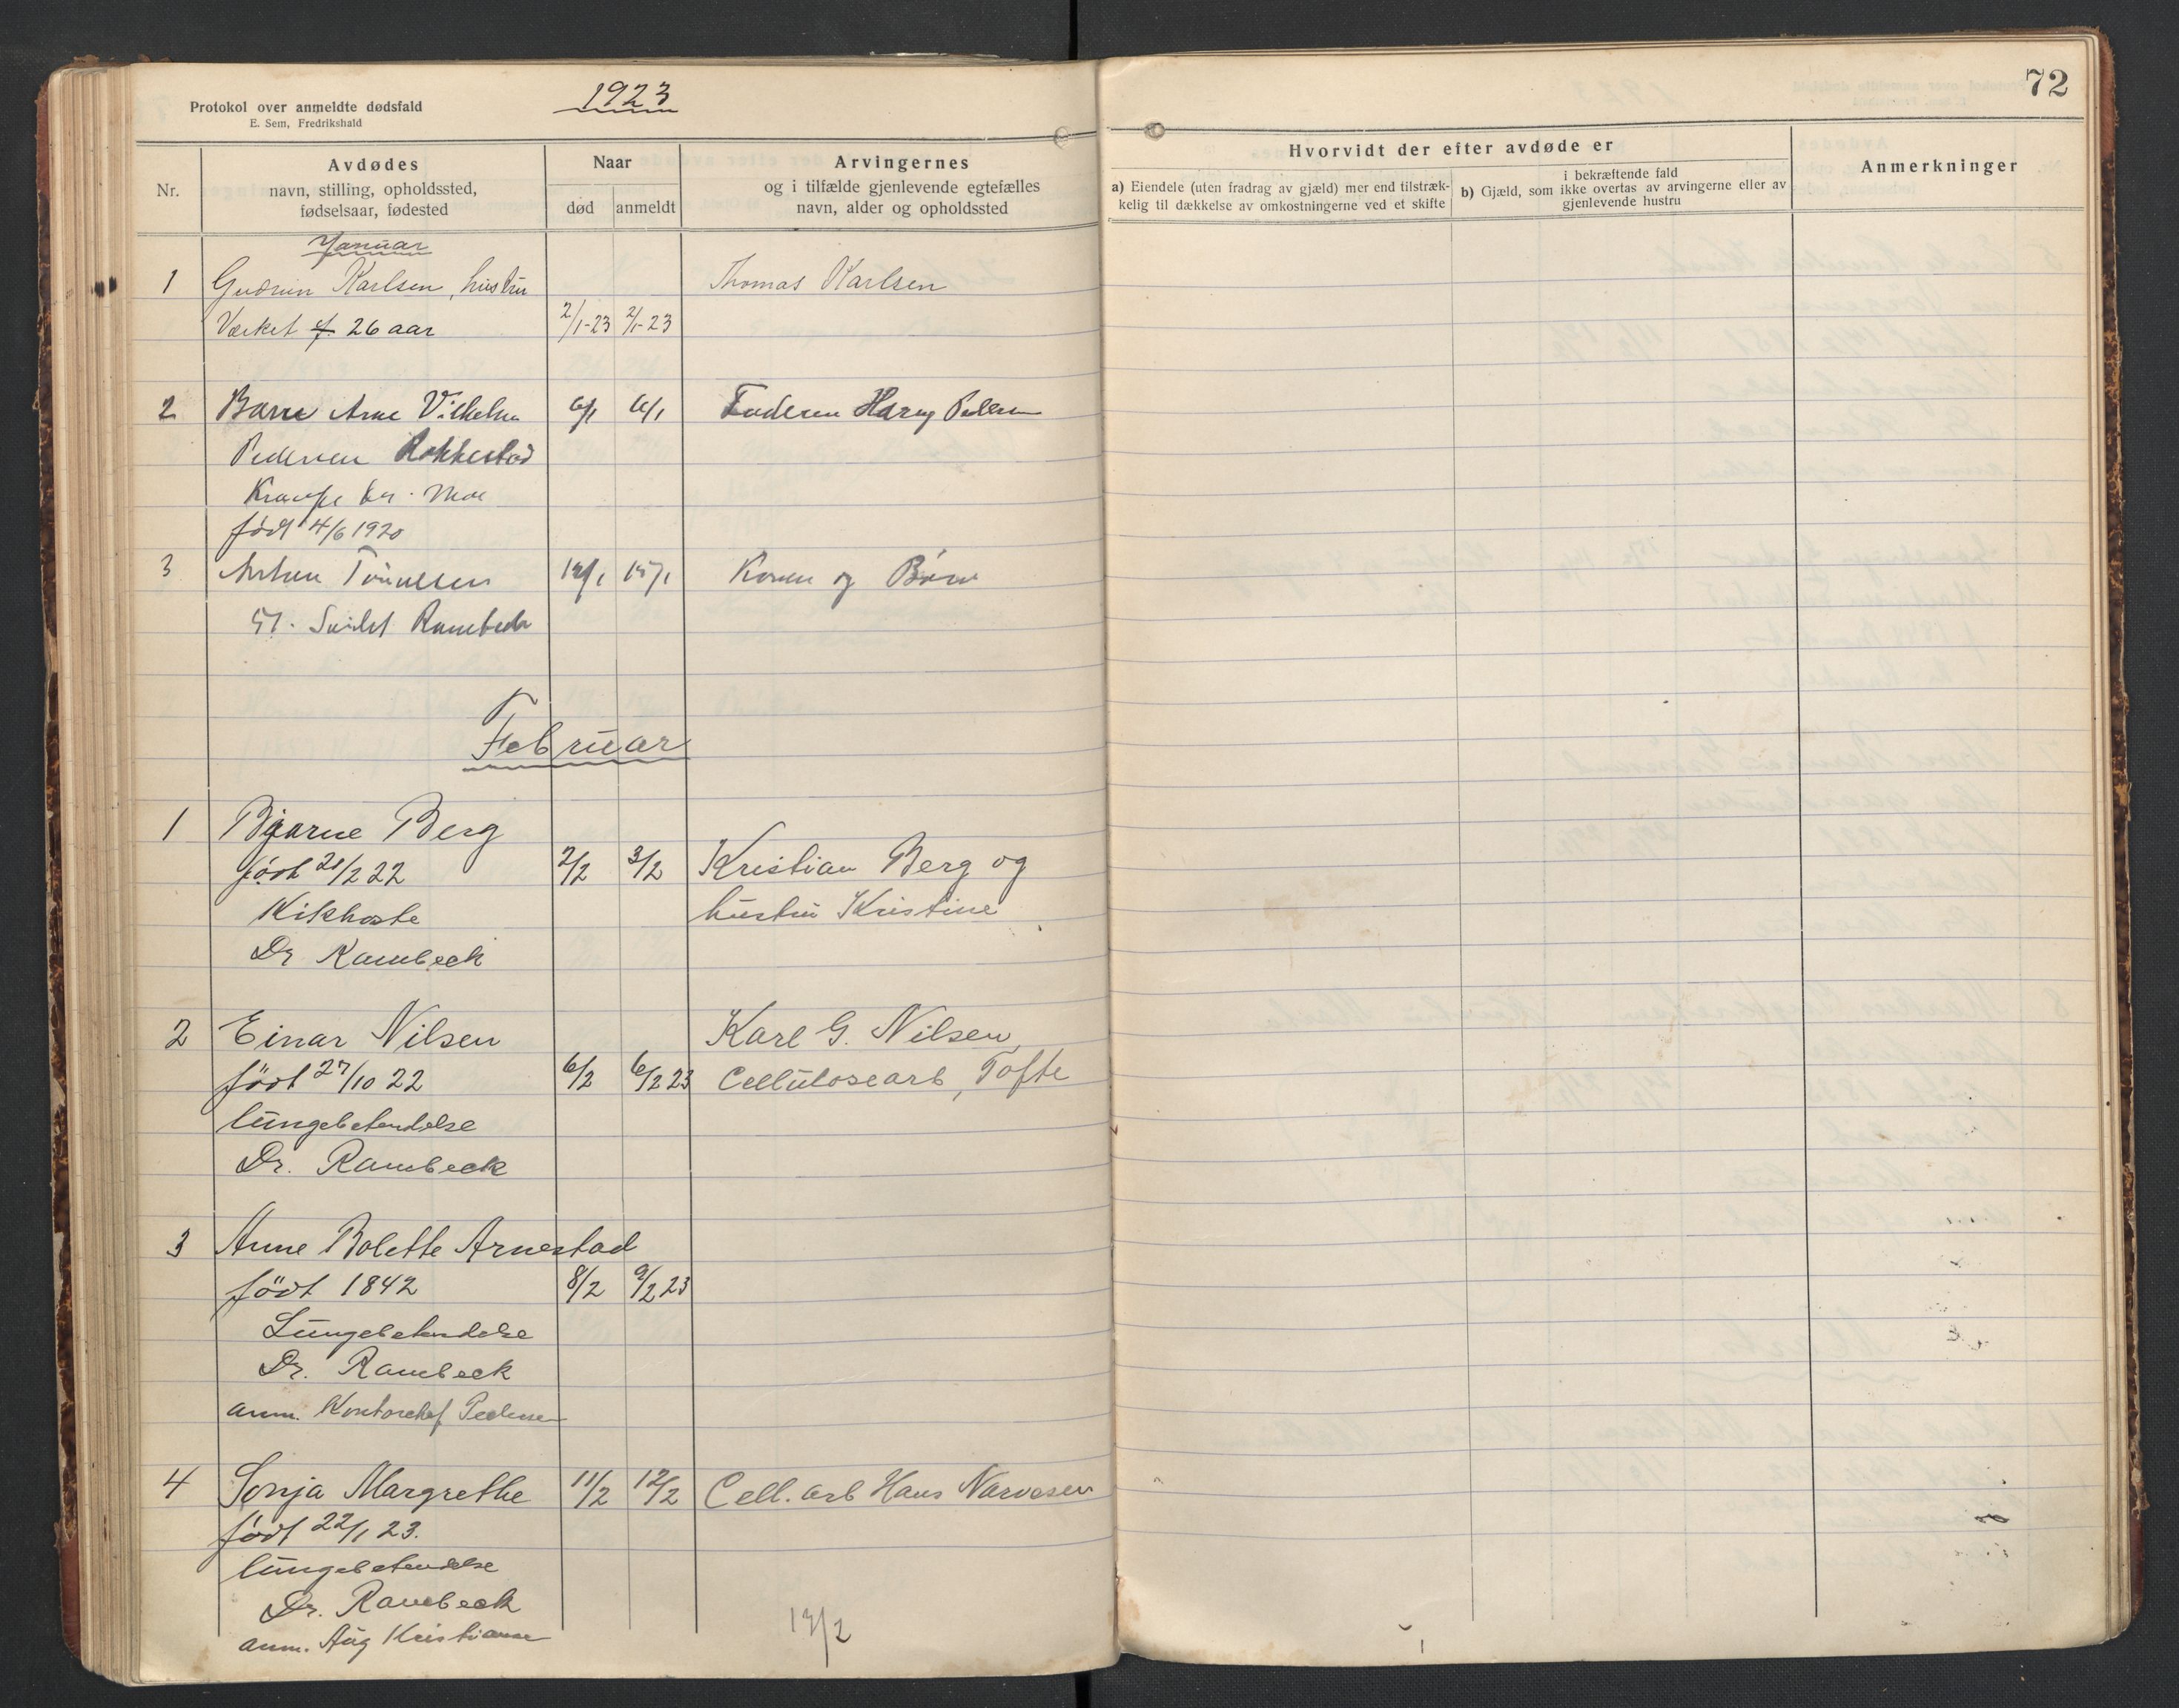 Protokol over anmeldte dødsfald
E. Sem, Fredrikshald
1923
72
Nr.
Avdødes
navn, stilling, opholdssted,
fødselsaar, fødested
Naar
død
anmeldt
Arvingernes
og i tilfælde gjenlevende egtefælles
navn, alder og opholdssted
Hvorvidt der efter avdøde er
a) Eiendele (uten fradrag av gjæld) mer end tilstræk-
kelig til dækkelse av omkostningerne ved et skifte
i bekræftende fald
b) Gjæld, som ikke overtas av arvingerne eller av
gjenlevende hustru
Anmerkninger
Januar
1 Gudrun Karlsen, hustru Thomas Karlsen
Værket f. 26 aar 2/1-23 2/1-23
2 Barn Arne Vilhelm 6/1 6/1 Faderen Harry Pedersen
Pedersen Rokkestad
Krampe
født 4/6 1920
3 15/1 Konen og Børn
Februar
1 Bjarne Berg
født 21/2 22 2/2 3/2 Kristian Berg og
Kikhoste hustru Kristine
Dr Rambeck
2 Einar Nilsen Karl G. Nilsen
født 27/10 22 6/2 6/2 23 Cellulosearb, Tofte
lungebetendelse
Dr. Rambeck
3 Anne Bolette Arnestad
født 1842 8/2 9/2 23
Lungebetendelse
Dr. Rambeck
anm. Kontorchef Pedersen
4 Sonja Margrethe 11/2 12/2 Cell. arb Hans Narvesen
født 22/1 23.
lungebetendelse
Dr. Rambeck
anm. Aug Kristiansen